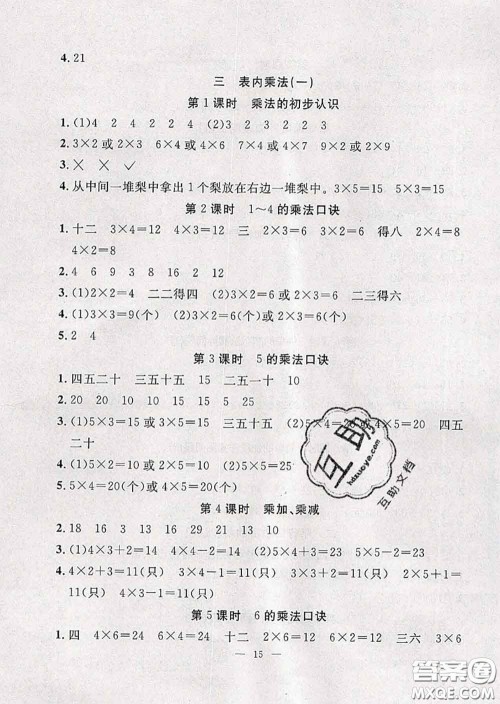 4. 21
三 表内乘法(一)
第1课时 乘法的初步认识
1. (1)4 2 4 2 2 4 (2)3 2 3 2 2 3
2. 3×2或2×3 6×4或4×6 6×7或7×6 9×2或2×9
3. × × ✓
4. 从中间一堆梨中拿出1个梨放在右边一堆梨中。3×5=15 5×3=15
第2课时 1~4的乘法口诀
1. 十二 3×4=12 4×3=12 三 3×2=6 2×3=6 得八 2×4=8
4×2=8
2. 4 6 9 3 8 16 2 12
3. (1)2×2=4 二二得四 (2)3×2=6或2×3=6 二三得六
4. (1)3×3=9(个) (2)3×2=6(个)或2×3=6(个)
5. 2 4
第3课时 5的乘法口诀
1. 四五二十 三五十五 15 二五一十 10
2. 20 20 10 15 10 15 5 5
3. (1)5×3=15或3×5=15 三五十五 (2)5×4=20或4×5=20 四五
二十
4. (1)5×2=10或2×5=10 (2)4×5=20或5×4=20
5. 5×4=20(个)或4×5=20(个)
第4课时 乘加、乘减
2. 18 16 3 13 9 29 16 21
3. (1)4×3+2=14 4×4-2=14 (2)5×4+3=23 5×5-2=23
4. 4×2+3=11(只) 3×4-1=11(只) 3×3+2=11(只)
4×3-1=11(只)
第5课时 6的乘法口诀
1. 四 4×6=24 6×4=24 十二 2×6=12 6×2=12 三六 3×6
— 15 —
互助
hdzuoye.com
互助文档
答案圈
MXQE.COM